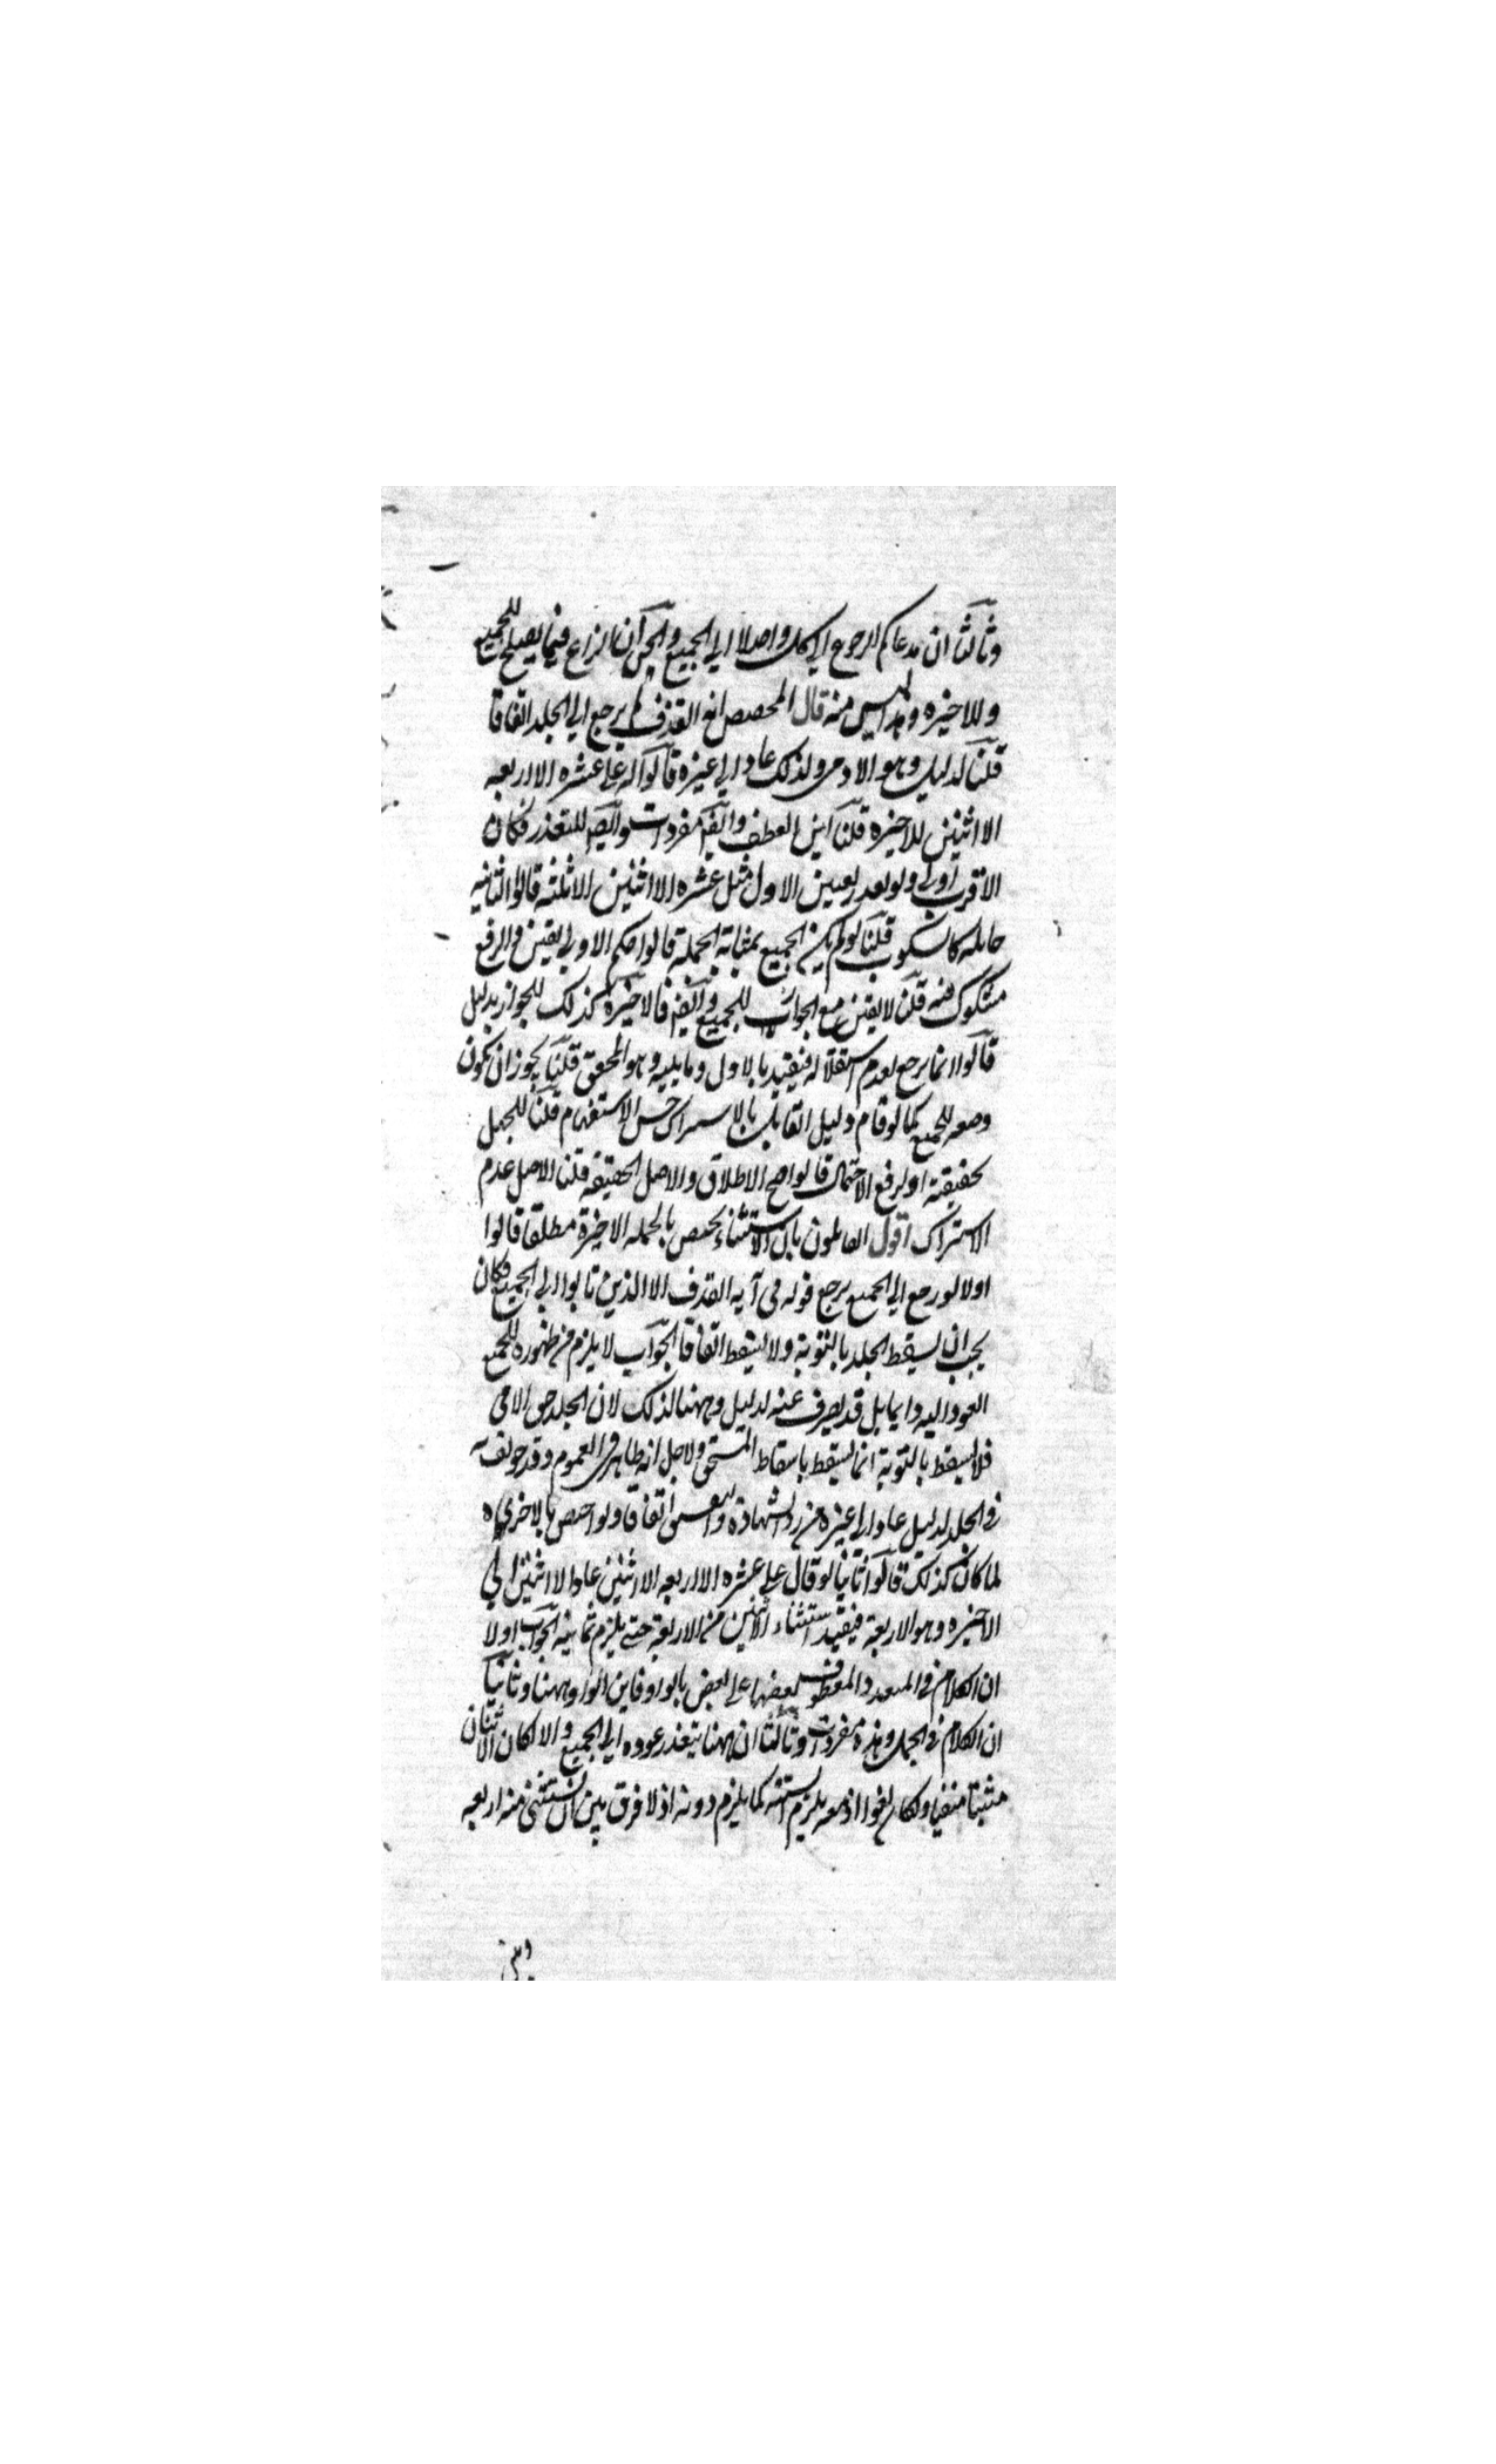 وثالثا ان مدعاكم الرجوع الى كل واحد لا الى الجميع والحق ان النزاع فيما يصلح للجميع
وللاخيره وهذا ليس منه قال المخصص اية القذف لم يرجع الى الجلد اتفاقا
قلنا لدليل وهو الادمى ولذلك عاد الى غيره قالوا له على عشره الا اربعه
الا اثنين للاخيره قلنا اين العطف وايضا مفردات وايضا للتعذر فكان
الاقرب اولى ولو تعذر تعين الاول مثل عشره الا اثنين الا ثلثه قالوا الثانيه
حايله كالسكوت قلنا لو لم يكن الجميع بمثابة الجملة قالوا حكم الاولى يقين والرفع
مشكوك فيه قلنا لا يقين مع الجواز للجميع وايضا فالاخيره كذلك للجواز بدليل
قالوا انما يرجع لعدم استقلاله فيتقيد بالاول وما يليه وهو المحقق قلنا يجوز ان يكون
وضعه للجميع كما لو قام دليل القايل بالاشتراك حسن الاستفهام قلنا للجهل
بحقيقته او لرفع الاحتمال قالوا صح الاطلاق والاصل الحقيقة قلنا الاصل عدم
الاشتراك اقول القايلون بان الاستثناء يختص بالجمله الاخيرة مطلقا قالوا
اولا لو رجع الى الجميع يرجع قوله فى آيه القذف الا الذين تابوا الى الجميع فكان
يجب ان يسقط الجلد بالتوبة ولا يسقط اتفاقا الجواب لا يلزم من ظهوره للجميع
العود اليه دايما بل قد يصرف عنه لدليل وههنا لذلك لان الجلد حق الادمى
فلا يسقط بالتوبة انما يسقط باسقاط المستحق ولاجل انه ظاهر فى العموم وقد خولف
فى الجلد لدليل عاد الى غيره من رد الشهادة والتفسيق اتفاقا ولو اختص بالاخرى
لما كان كذلك قالوا ثانيا لو قال على عشره الا اربعه الا اثنين عاد الا اثنين الى
الاخيره وهو الاربعة فيفيد استثناء الاثنين من الاربعة حتى يلزم ثمانية الجواب اولا
ان الكلام فى المتعدد المعطوف بعضها على بعض بالواو فاين الواو ههنا وثانيا
ان الكلام فى الجمل وهذه مفردات وثالثا ان ههنا يتعذر عوده الى الجميع والا لكان الاثنان
مثبتا منفيا ولكان لغوا اذ معه يلزم الستة كما يلزم دونه اذ لا فرق بين ان يستثنى منه اربعه